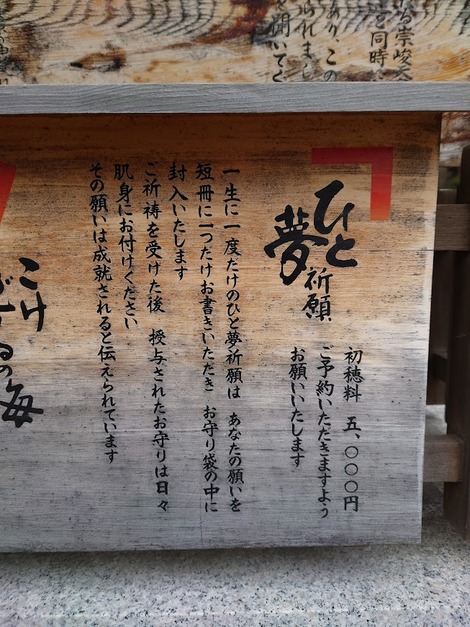 る宗峻天
と同時に
あり この
られまし
を開いてく
ひと
夢
祈願
初穂料 五、〇〇〇円
ご予約いただきますよう
お願いいたします
一生に一度だけのひと夢祈願は あなたの願いを
短冊に一つだけお書きいただき お守り袋の中に
封入いたします
ご祈祷を受けた後 授与されたお守りは日々
肌身にお付けください
その願いは成就されると伝えられています
こけ